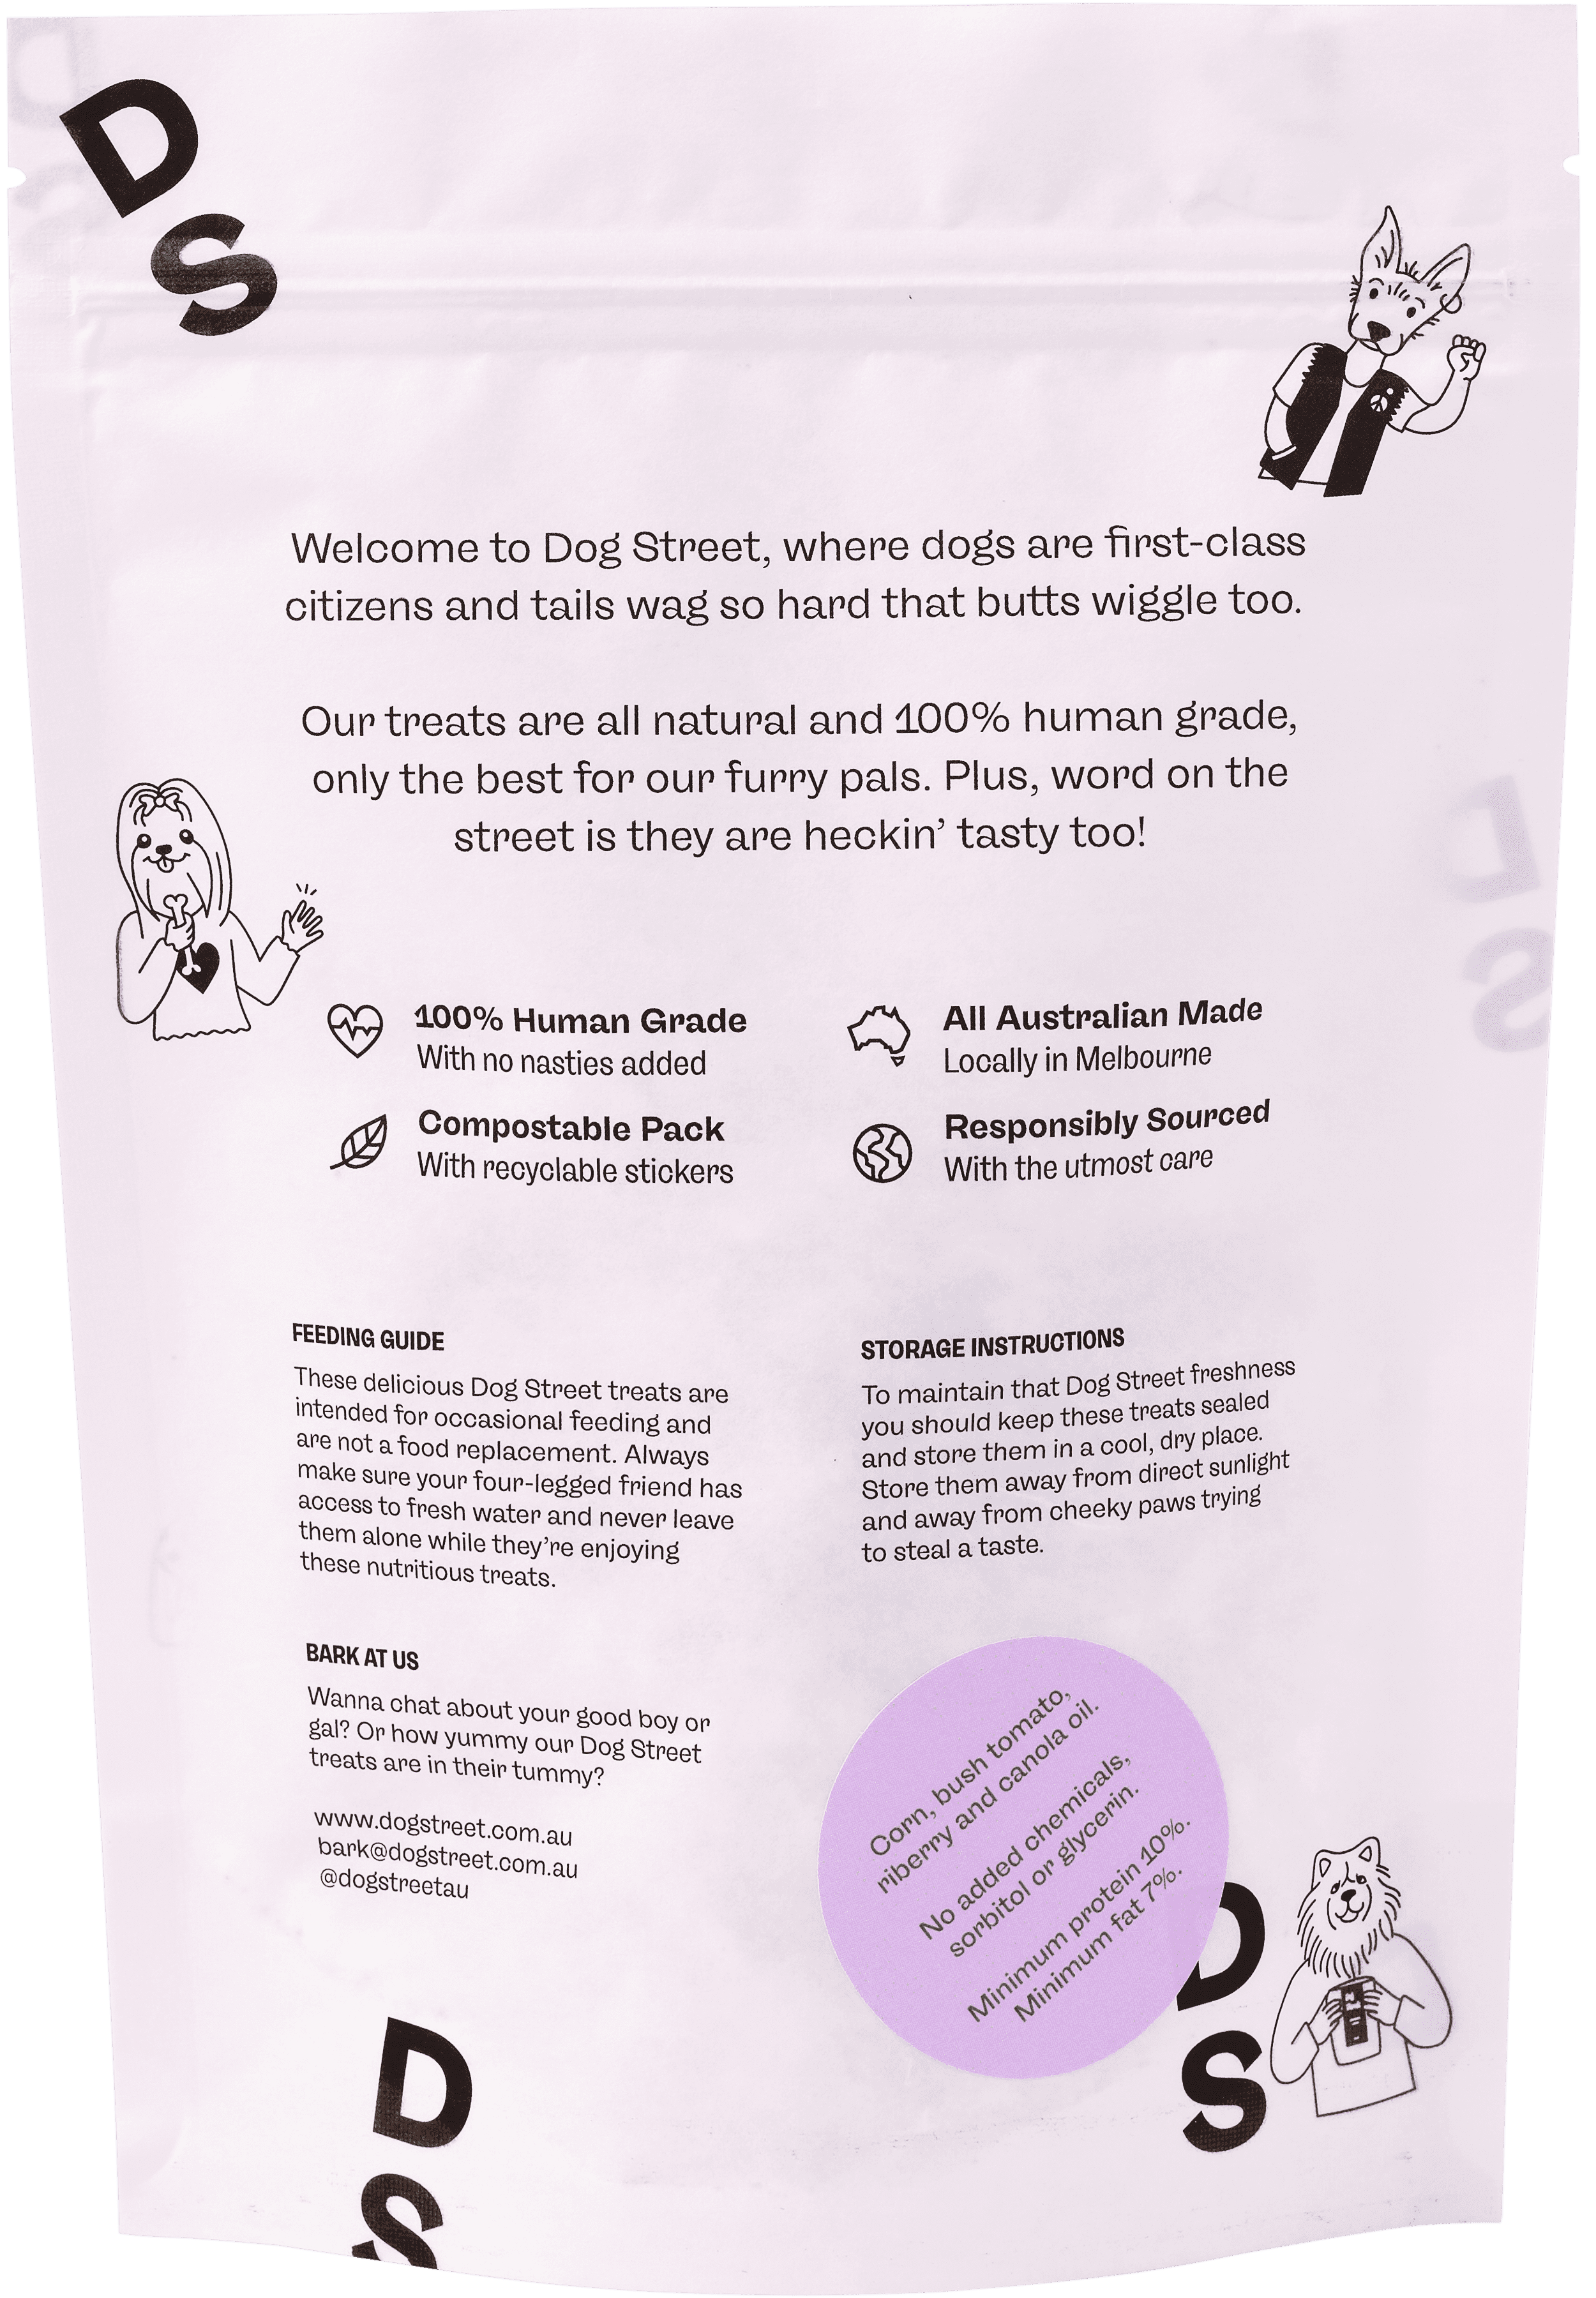 D
S
Welcome to Dog Street, where dogs are first-class
citizens and tails wag so hard that butts wiggle too.
Our treats are all natural and 100% human grade,
only the best for our furry pals. Plus, word on the
street is they are heckin’ tasty too!
D
S
100% Human Grade
With no nasties added
All Australian Made
Locally in Melbourne
Compostable Pack
With recyclable stickers
Responsibly Sourced
With the utmost care
FEEDING GUIDE
These delicious Dog Street treats are
intended for occasional feeding and
are not a food replacement. Always
make sure your four-legged friend has
access to fresh water and never leave
them alone while they’re enjoying
these nutritious treats.
STORAGE INSTRUCTIONS
To maintain that Dog Street freshness
you should keep these treats sealed
and store them in a cool, dry place.
Store them away from direct sunlight
and away from cheeky paws trying
to steal a taste.
BARK AT US
Wanna chat about your good boy or
gal? Or how yummy our Dog Street
treats are in their tummy?
www.dogstreet.com.au
bark@dogstreet.com.au
@dogstreetau
Corn, bush tomato,
riberry and canola oil.
No added chemicals,
sorbitol or glycerin.
Minimum protein 10%.
Minimum fat 7%.
D
S
D
S